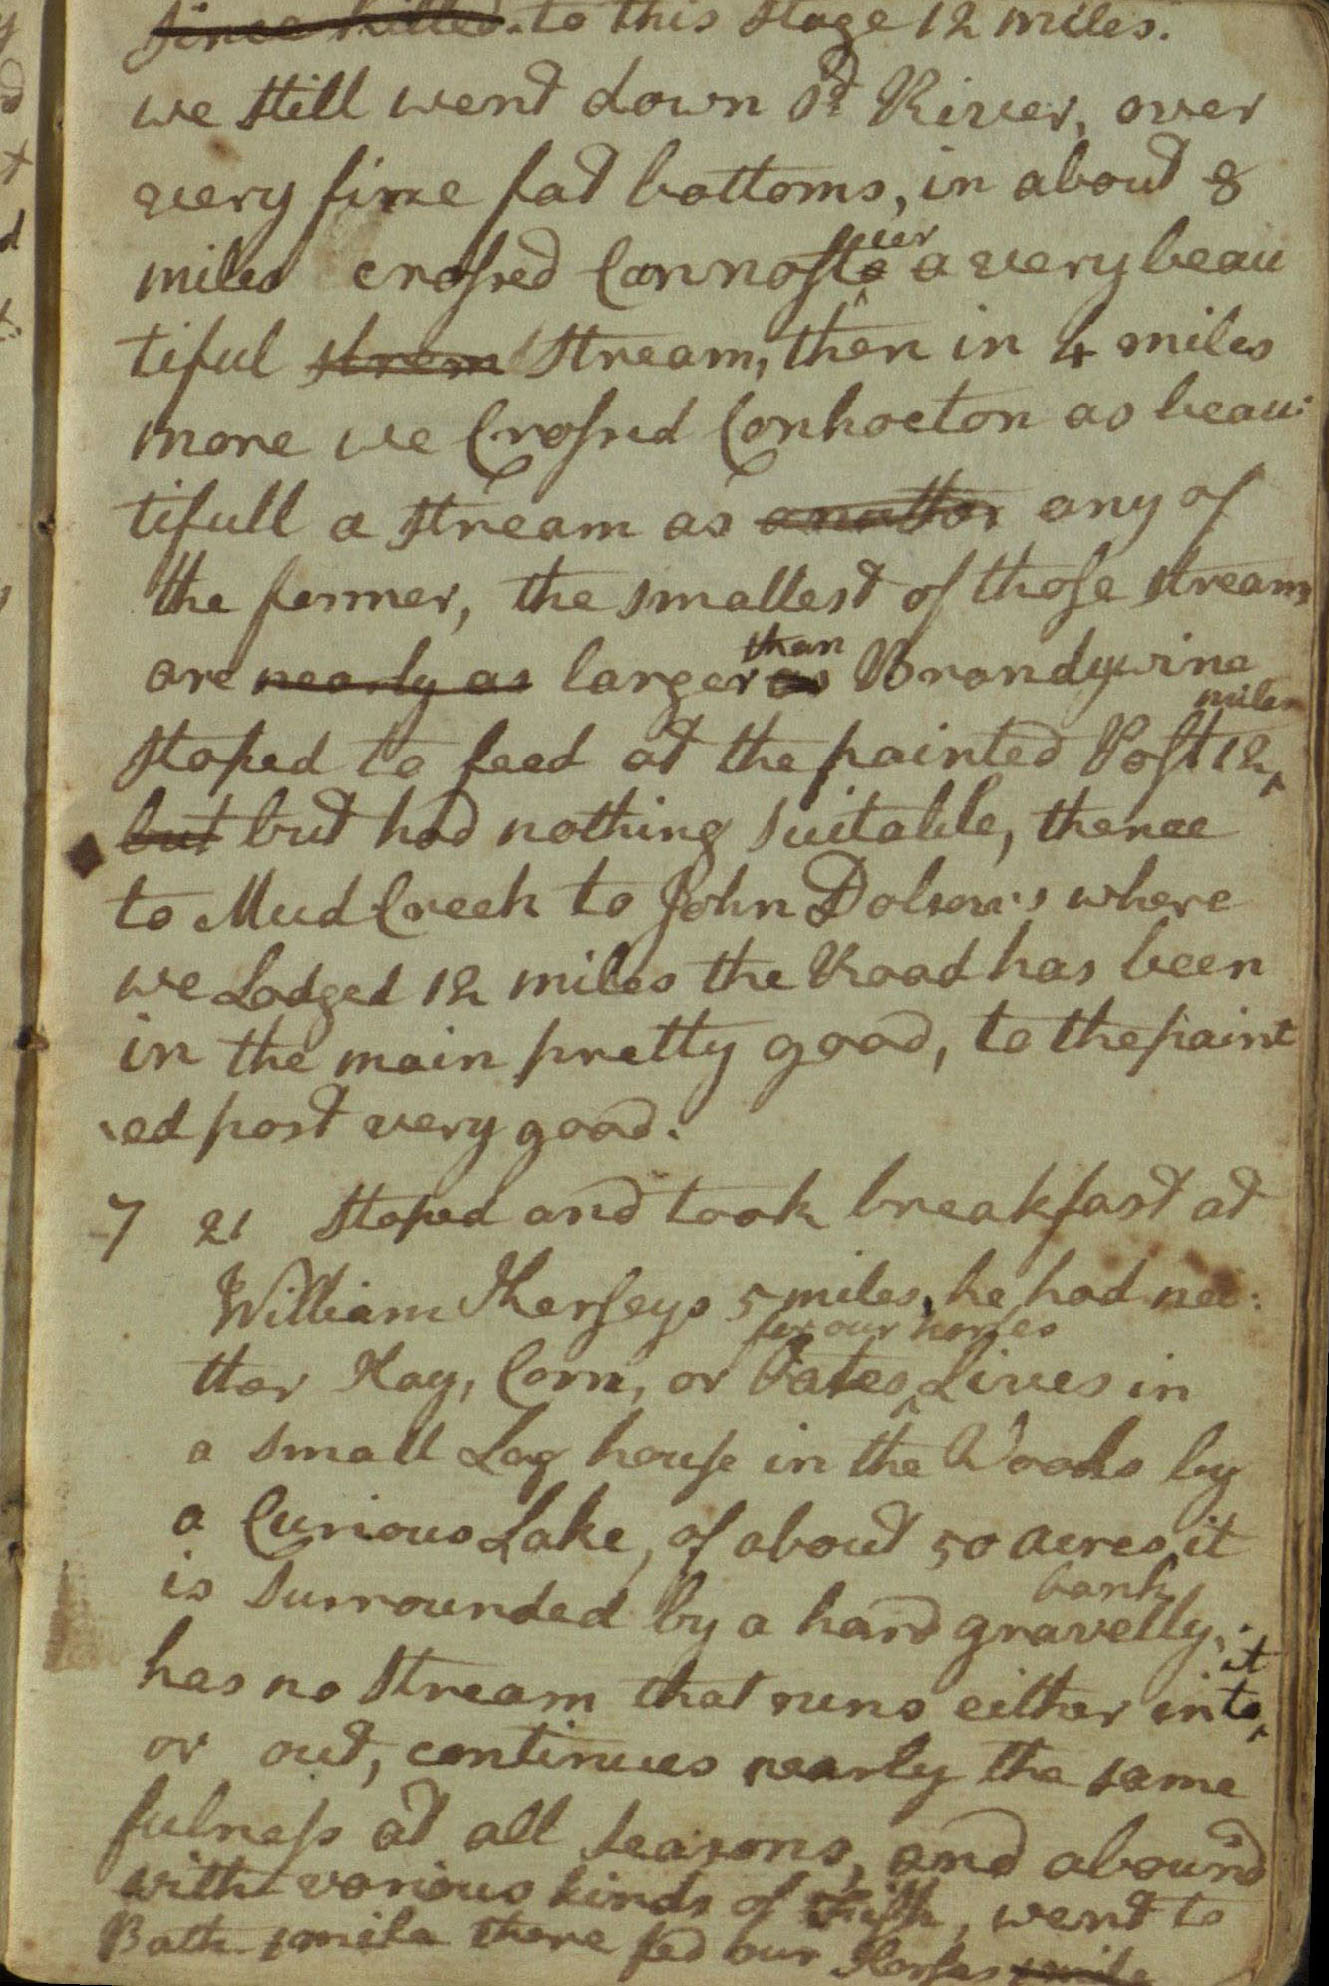 since killed. to this Stage 12 miles.
we still went down sd River, over
very fine fat bottoms, in about 8
miles crossed Connosteo River a very beau
tiful strem Stream, then in 4 miles
more we Crossed Conhocton as beau:
tifull a stream as another any of
the former, the smallest of those streams
are nearly as larger as than Brandywine
stoped to feed at the painted Post 12 miles
but but had nothing suitable, thence
to Mud Creek to John Dolson's where
we Lodged 12 miles the Road has been
in the main pretty good, to the paint
ed post very good.
7 21 Stoped and took breakfast at
William Kerseys 5 miles, he had nei:
ther Hay, Corn, or Oates for our horses Lives in
a small Log house in the Woods by
a Curious Lake, of about 50 acres it
is surrounded by a hard gravelly bank,
has no stream that runs either into it
or out, continues nearly the same
fulness at all seasons, and abound
with various kinds of Fish, went to
Bath 1 mile there fed our Horses 1 mile